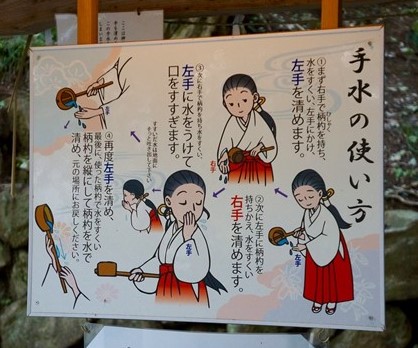 手水の使い方
①まず右手で柄杓を持ち、
水をすくい、左手にかけ、
左手を清めます。
②次に左手に柄杓を
持ちかえ、水をすくい
右手を清めます。
③次に右手で柄杓を持ち水をすくい、
左手に水をうけて
口をすすぎます。
④再度左手を清め、
最後に、使った柄杓で水をすくい
柄杓を縦にして柄杓を水で
清め、元の場所にお戻しください。
右手
左手
左手
左手